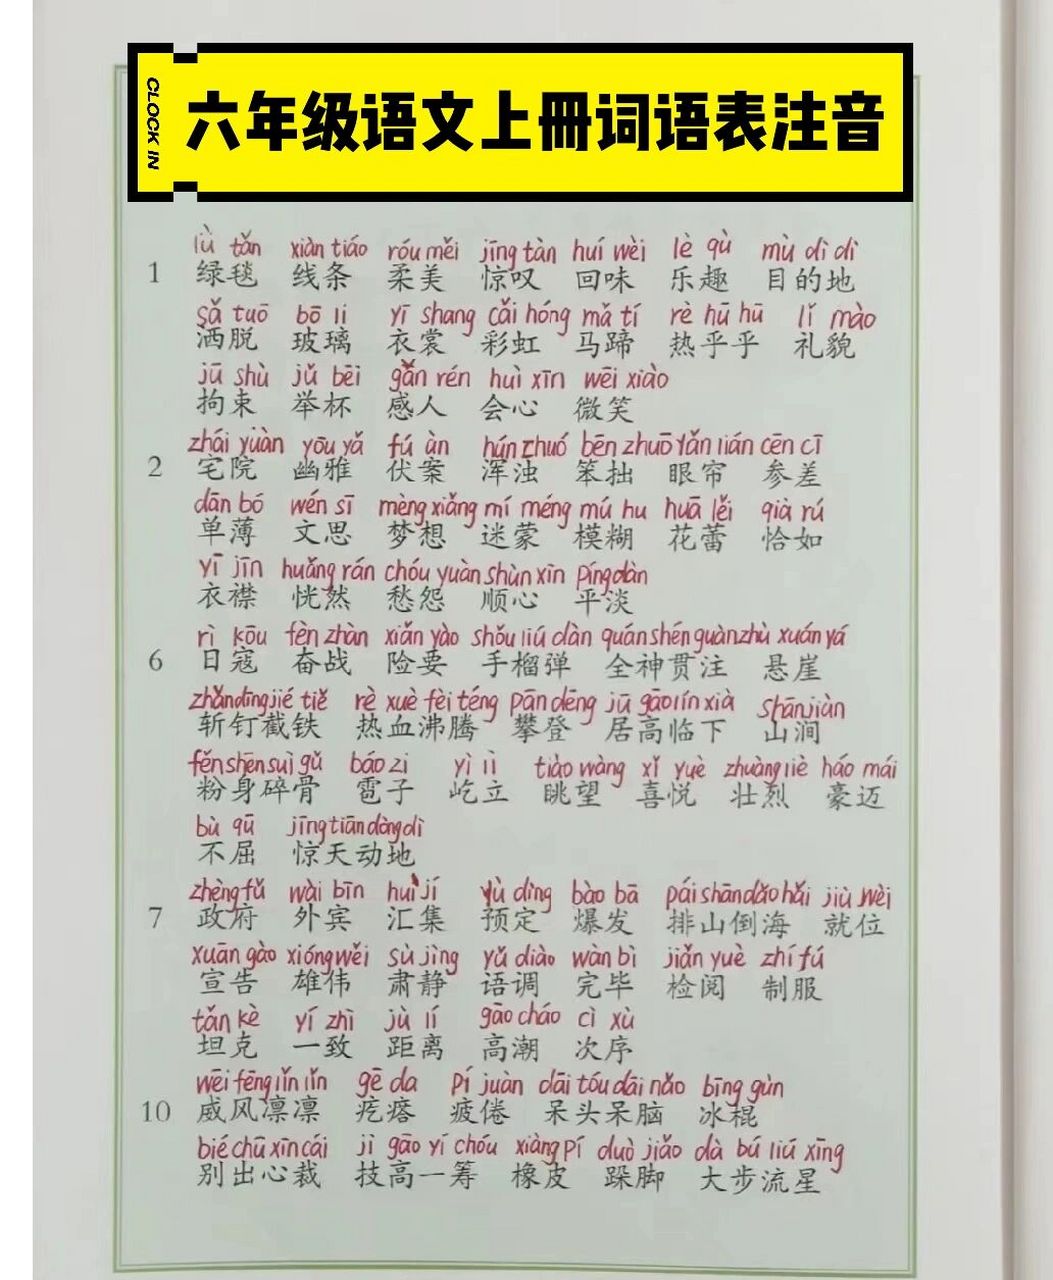 CLOCK IN
六年级语文上册词语表注音
lǜ tǎn xiàn tiáo róu měi jīng tàn huí wèi lè qù mù dì dì
1 绿毯 线条 柔美 惊叹 回味 乐趣 目的地
sǎ tuō bō li yī shang cǎi hóng mǎ tí rè hū hū lǐ mào
洒脱 玻璃 衣裳 彩虹 马蹄 热乎乎 礼貌
jū shù jǔ bēi gǎn rén huì xīn wēi xiào
拘束 举杯 感人 会心 微笑
zhái yuàn yōu yǎ fú àn hún zhuó bèn zhuō yǎn lián cēn cī
2 宅院 幽雅 伏案 浑浊 笨拙 眼帘 参差
dān bó wén sī mèng xiǎng mí méng mú hu huā lěi qià rú
单薄 文思 梦想 迷蒙 模糊 花蕾 恰如
yī jīn huǎng rán chóu yuàn shùn xīn píng dàn
衣襟 恍然 愁怨 顺心 平淡
rì kòu fèn zhàn xiǎn yào shǒu liú dàn quán shén guàn zhù xuán yá
6 日寇 奋战 险要 手榴弹 全神贯注 悬崖
zhǎn dīng jié tiě rè xuè fèi téng pān dēng jū gāo lín xià shān jiàn
斩钉截铁 热血沸腾 攀登 居高临下 山涧
fěn shēn suì gǔ báo zi yì lì tiào wàng xǐ yuè zhuàng liè háo mái
粉身碎骨 雹子 屹立 眺望 喜悦 壮烈 豪迈
bù qū jīng tiān dòng dì
不屈 惊天动地
zhèng fǔ wài bīn huì jí yù dìng bào bā pái shān dǎo hǎi jiù wèi
7 政府 外宾 汇集 预定 爆发 排山倒海 就位
xuān gào xióng wěi sù jìng yǔ diào wàn bì jiǎn yuè zhí fú
宣告 雄伟 肃静 语调 完毕 检阅 制服
tǎn kè yí zhì jù lí gāo cháo cì xù
坦克 一致 距离 高潮 次序
wēi fēng lǐn lǐn gē da pí juàn dāi tóu dāi nǎo bīng gùn
10 威风凛凛 疙瘩 疲倦 呆头呆脑 冰棍
bié chū xīn cái jì gāo yí chóu xiàng pí duò jiǎo dà bú liú xīng
别出心裁 技高一筹 橡皮 跺脚 大步流星